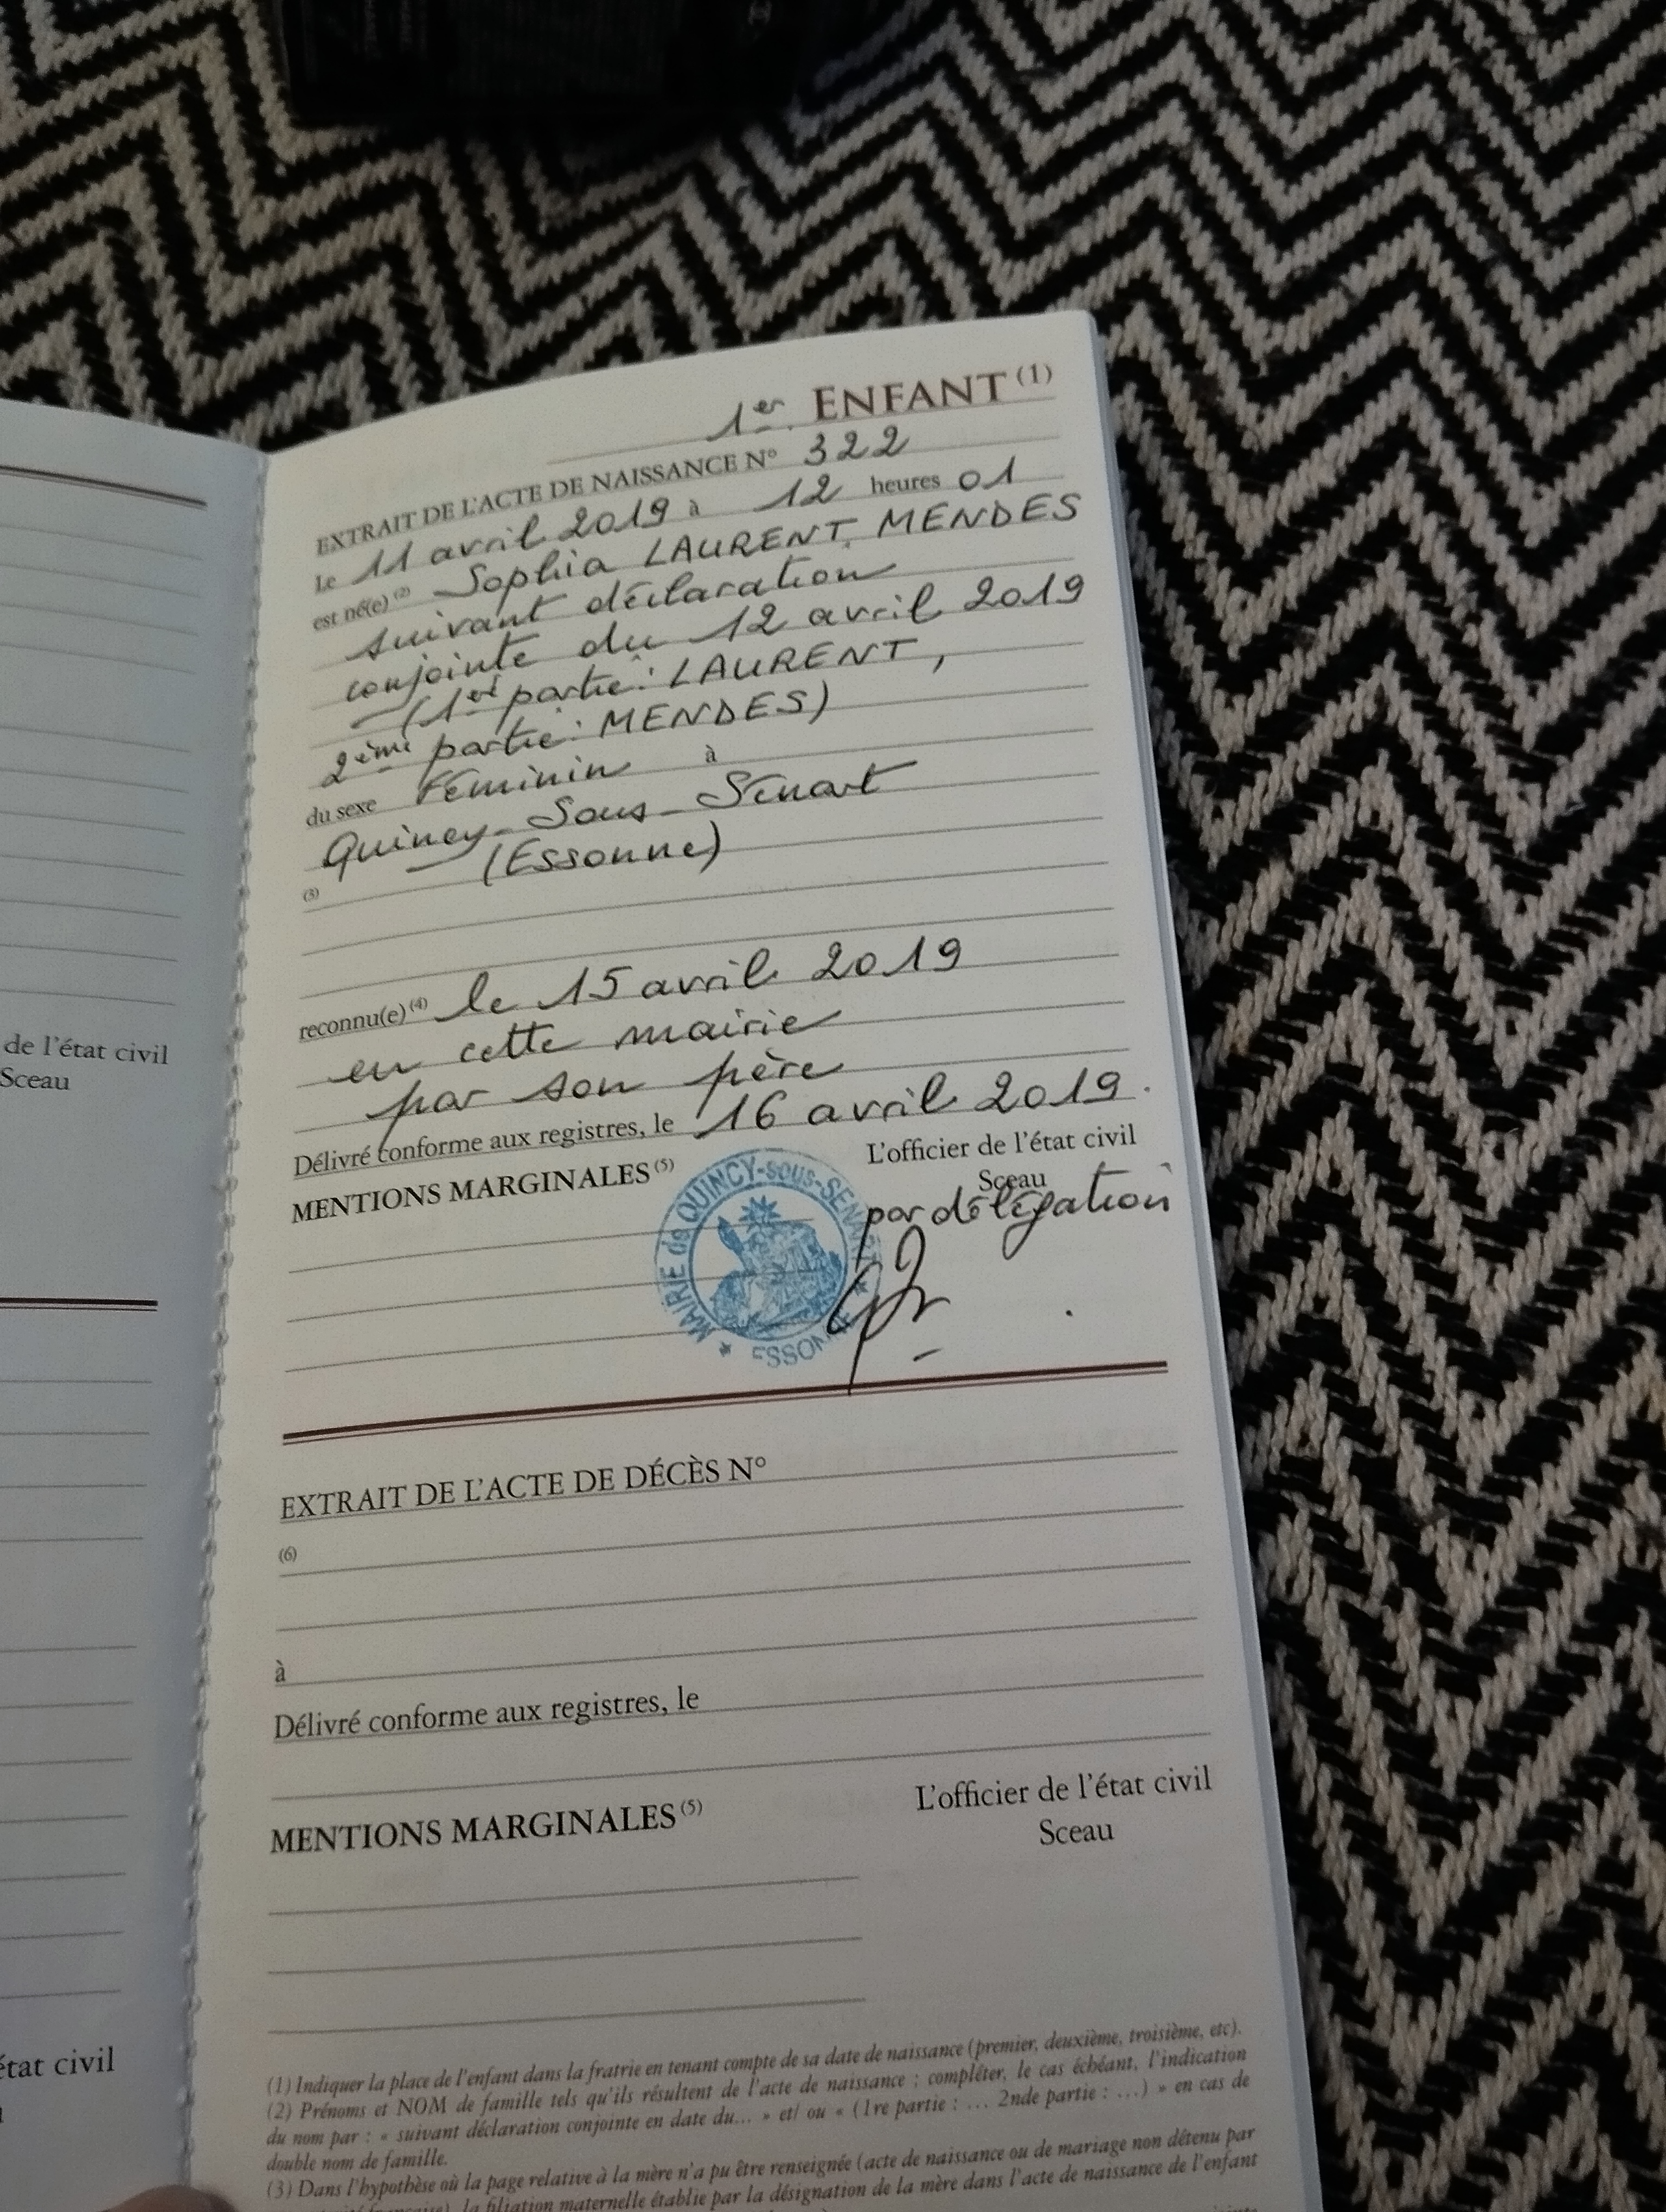 de l'état civil
Sceau
état civil
1er ENFANT (1)
EXTRAIT DE L'ACTE DE NAISSANCE N° 322
Le 11 avril 2019 à 12 heures 01
est né(e) (2) Sophia LAURENT MENDES
suivant déclaration
conjointe du 12 avril 2019
(1er partie: LAURENT,
2ème partie: MENDES)
du sexe Féminin à
Quincy-Sous-Sénart
(Essonne)
(3)
reconnu(e) (4) le 15 avril 2019
en cette mairie
par son père
Délivré conforme aux registres, le 16 avril 2019.
MENTIONS MARGINALES (5)
L'officier de l'état civil
Sceau
par délégation
MAIRIE de QUINCY-sous-SÉNART
ESSONNE
EXTRAIT DE L'ACTE DE DÉCÈS N°
(6)
à
Délivré conforme aux registres, le
MENTIONS MARGINALES (5)
L'officier de l'état civil
Sceau
(1) Indiquer la place de l'enfant dans la fratrie en tenant compte de sa date de naissance (premier, deuxième, troisième, etc).
(2) Prénoms et NOM de famille tels qu'ils résultent de l'acte de naissance ; compléter, le cas échéant, l'indication
du nom par : « suivant déclaration conjointe en date du... » et/ ou « (1re partie : ... 2nde partie : ...) » en cas de
double nom de famille.
(3) Dans l'hypothèse où la page relative à la mère n'a pu être renseignée (acte de naissance ou de mariage non détenu par
la filiation maternelle établie par la désignation de la mère dans l'acte de naissance de l'enfant